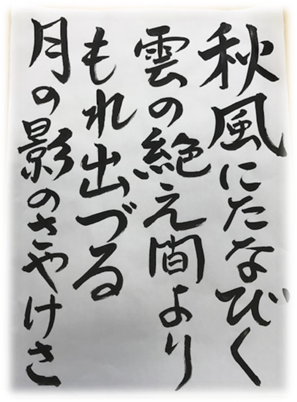 秋風にたなびく
雲の絶え間より
もれ出づる
月の影のさやけさ